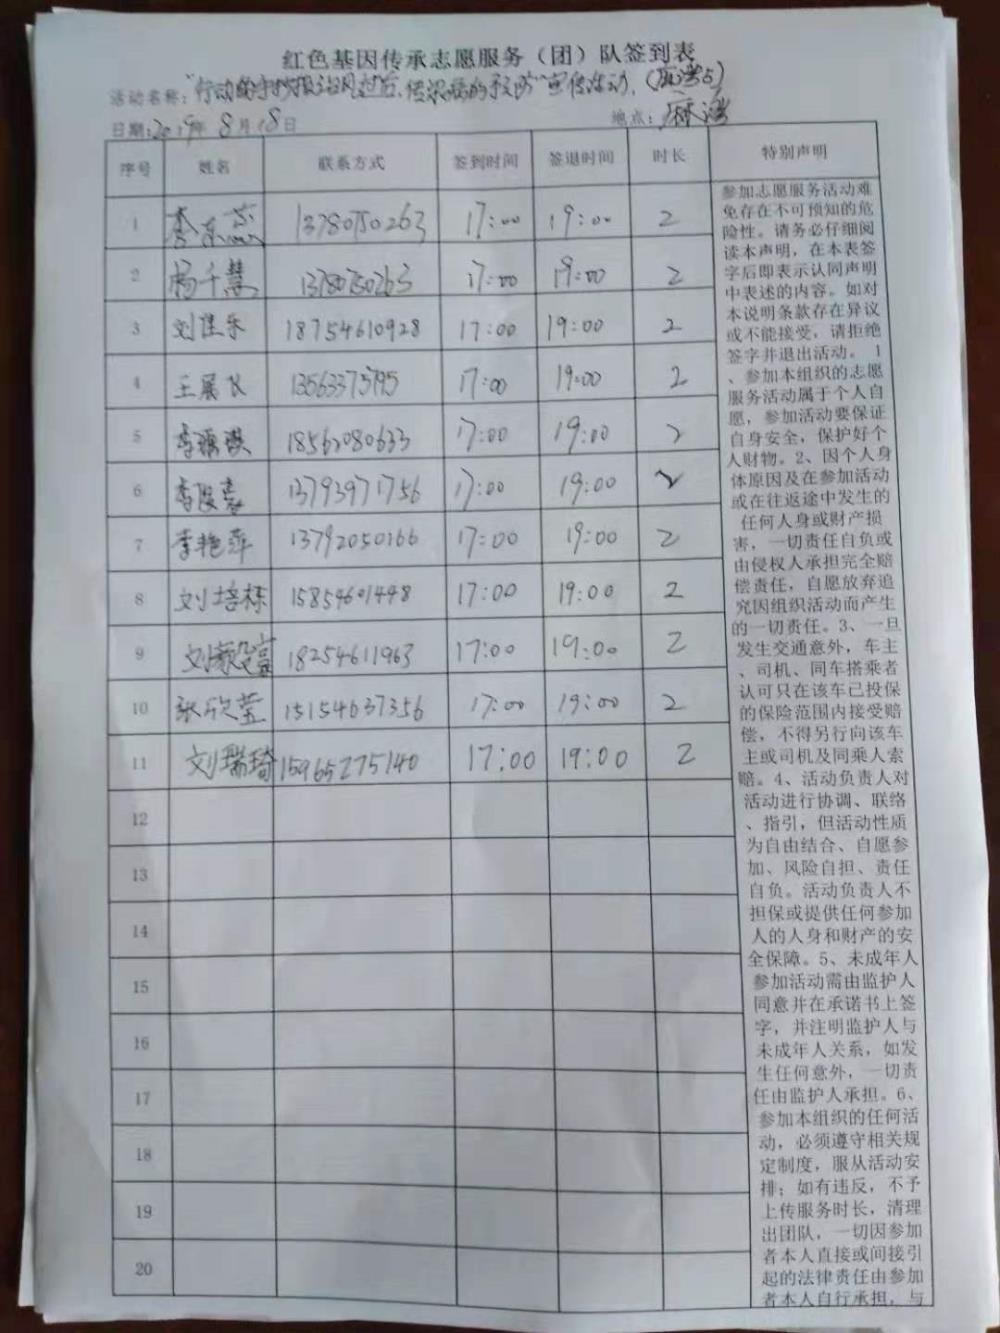 红色基因传承志愿服务（团）队签到表
活动名称："行动的守护 台风过后、传染病的预防"宣传活动，
日期:2019年8月18日 地点：麻湾
序号 姓名 联系方式 签到时间 签退时间 时长 特别声明
1 李东蕊 13780750263 17:00 19:00 2
2 杨千慧 13780750263 17:00 19:00 2
3 刘佳乐 18754610928 17:00 19:00 2
4 王展飞 13563375795 17:00 19:00 2
5 李 18562080633 17:00 19:00 2
6 李 13793971756 17:00 19:00 2
7 李艳萍 13792050166 17:00 19:00 2
8 刘培栋 15854601448 17:00 19:00 2
9 刘 18254611963 17:00 19:00 2
10 张欣莹 15154637356 17:00 19:00 2
11 刘瑞琦 15965275140 17:00 19:00 2
12
13
14
15
16
17
18
19
20
参加志愿服务活动难
免存在不可预知的危
险性。请务必仔细阅
读本声明，在本表签
字后即表示认同声明
中表述的内容。如对
本说明条款存在异议
或不能接受，请拒绝
签字并退出活动。 1
、参加本组织的志愿
服务活动属于个人自
愿，参加活动要保证
自身安全，保护好个
人财物。2、因个人身
体原因及在参加活动
或在往返途中发生的
任何人身或财产损
害，一切责任自负或
由侵权人承担完全赔
偿责任，自愿放弃追
究因组织活动而产生
的一切责任。3、一旦
发生交通意外，车主
、司机、同车搭乘者
认可只在该车已投保
的保险范围内接受赔
偿，不得另行向该车
主或司机及同乘人索
赔。4、活动负责人对
活动进行协调、联络
、指引，但活动性质
为自由结合、自愿参
加、风险自担、责任
自负。活动负责人不
担保或提供任何参加
人的人身和财产的安
全保障。5、未成年人
参加活动需由监护人
同意并在承诺书上签
字，并注明监护人与
未成年人关系，如发
生任何意外，一切责
任由监护人承担。6、
参加本组织的任何活
动，必须遵守相关规
定制度，服从活动安
排；如有违反，不予
上传服务时长，清理
出团队，一切因参加
者本人直接或间接引
起的法律责任由参加
者本人自行承担，与